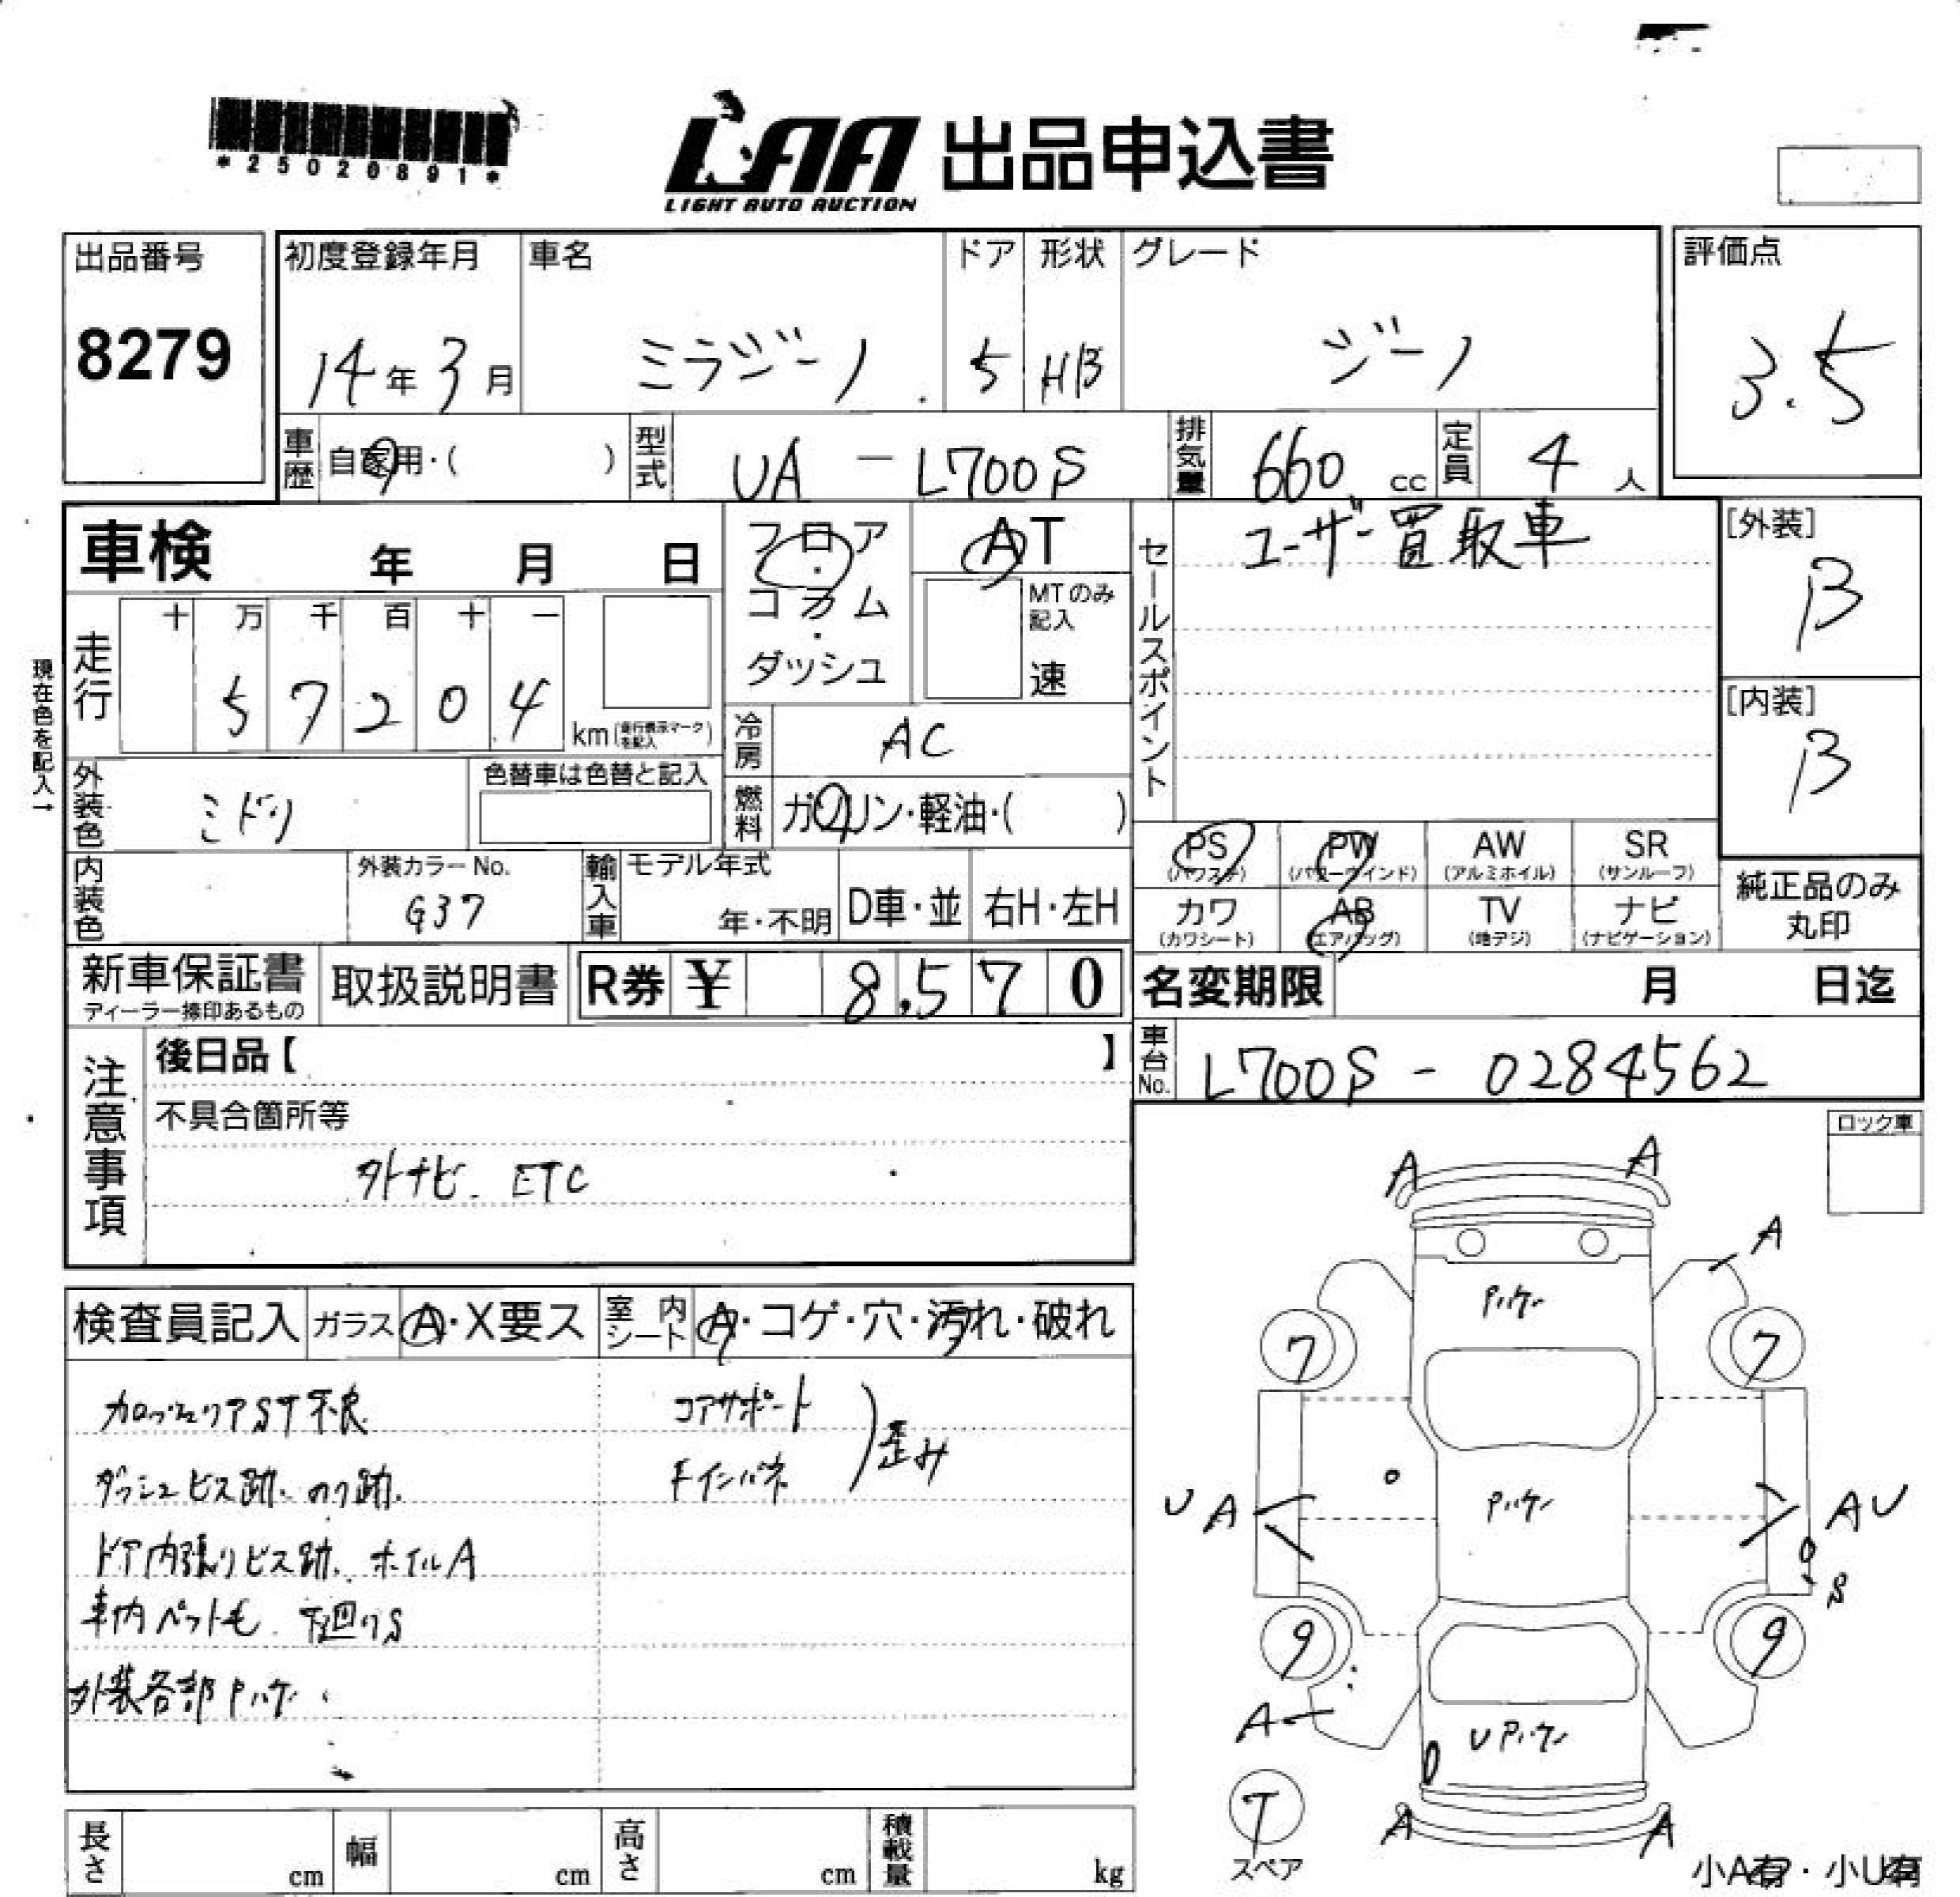 *25020891*
LAA 出品申込書
LIGHT AUTO AUCTION
出品番号
8279
初度登録年月
14年3月
車名
ミラジーノ
ドア
5
形状
HB
グレード
ジーノ
評価点
3.5
車歴 自家用・( )
型式 UA-L700S
排気量 660 cc
定員 4 人
車検 年 月 日
フロア・コラム・ダッシュ
AT
MTのみ記入
速
セールスポイント
ユーザー買取車
[外装]
B
[内装]
B
現在色を記入→
走行
十 万 千 百 十 一
5 7 2 0 4
km(走行表示マークを記入)
冷房 AC
外装色 ミドリ
色替車は色替と記入
燃料 ガソリン・軽油・( )
内装色
外装カラーNo.
G37
輸入車
モデル年式
年・不明
D車・並
右H・左H
PS (パワステ)
PW (パワーウインド)
AW (アルミホイル)
SR (サンルーフ)
カワ (カワシート)
AB (エアバッグ)
TV (地デジ)
ナビ (ナビゲーション)
純正品のみ丸印
新車保証書
ディーラー捺印あるもの
取扱説明書
R券 ¥ 8,570
名変期限 月 日迄
車台No. L700S-0284562
注意事項
後日品【 】
不具合箇所等
外ナビ. ETC
ロック車
検査員記入
ガラス A・X要ス
室内シート A・コゲ・穴・汚れ・破れ
カロッツェリアST不良
ダッシュビス跡. のり跡.
ドア内張りビス跡. ホイルA
車内ペット毛 下廻りS
外装各部Pハゲ
コアサポート
Fインパネ
歪み
A A
A
Pハゲ
7 7
U A
Pハゲ
A U
S
9 9
A
U Pハゲ
T
スペア
A A
小A有・小U有
長さ cm
幅 cm
高さ cm
積載量 kg